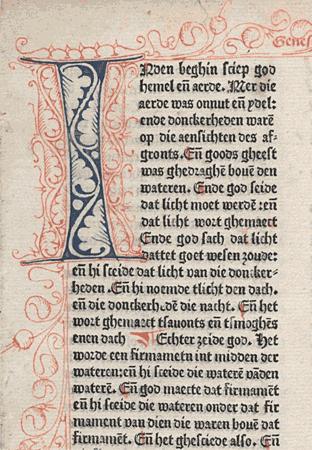 Genes
INden beghin sciep god
hemel eñ aerde. Mer die
aerde was onnut eñ ydel:
ende donckerheden warē
op die aensichten des af-
gronts. Eñ goods gheest
was ghedraghē bouē den
wateren. Ende god seide
dat licht moet werdē: eñ
dat licht wort ghemaect
Ende god sach dat licht
dattet goet wesen zoude:
eñ hi sceide dat licht van die doncker-
heden. Eñ hi noemde tlicht den dach.
eñ die donckerhedē die nacht. Eñ het
wort ghemaect tsauonts eñ tsmoghēs
eenen dach Echter zeide god. Het
worde een firmametn int midden der
wateren: eñ hi sceide die waterē vāden
waterē. Eñ god maecte dat firmamēt
eñ hi sceide die wateren onder dat fir
mament van dien die waren bouē dat
firmamēt. Eñ het ghesciede also. Eñ